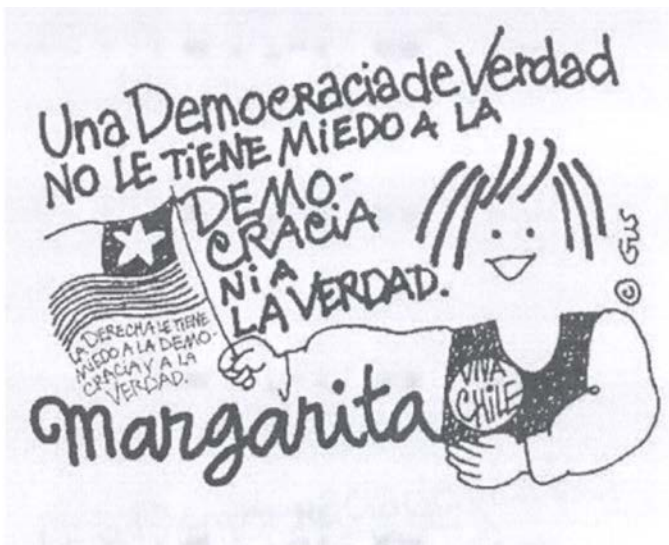 Una Democracia de Verdad
NO LE TIENE MIEDO A LA
DEMO-
CRACIA
NI A
LA VERDAD.
© GUS
LA DERECHA LE TIENE
MIEDO A LA DEMO-
CRACIA Y A LA
VERDAD.
VIVA
CHILE
Margarita